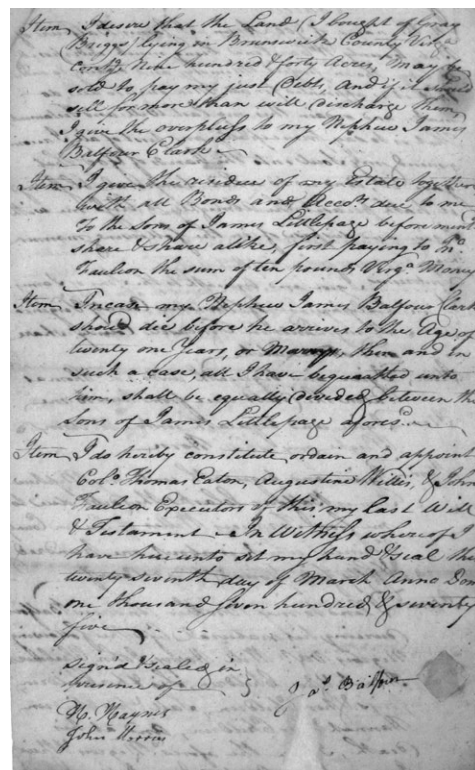 Item I desire that the Land (I bought of Gray
Briggs) lying in Brunswick County Virga
contg Nine hundred & forty Acres, may be
sold to pay my just Debts, and if it should
sell for more than will discharge them,
I give the overpluss to my Nephew James
Balfour Clark
Item I give the residue of my Estate together
with all Bonds and Accots due to me
To the Sons of James Littlepage before ment
share & share alike, first paying to Jno
Faulcon the sum of ten pounds Virga Money
Item Incase my Nephew James Balfour Clark
should die before he arrives to the Age of
twenty one Years, or Marrys, then and in
such a case, all I have bequeathed unto
him, shall be equally divided between the
Sons of James Littlepage aforesd
Item I do hereby constitute ordain and appoint
Colo Thomas Eaton, Augustine Willis, & John
Faulcon Executors of this, my last Will
& Testament In Witness whereof I
have hereunto set my hand & seal the
twenty seventh day of March Anno Dom
one thousand seven hundred & seventy
five
Sign'd & sealed in
presence of Jas Balfour
H. Haynes
John Morris